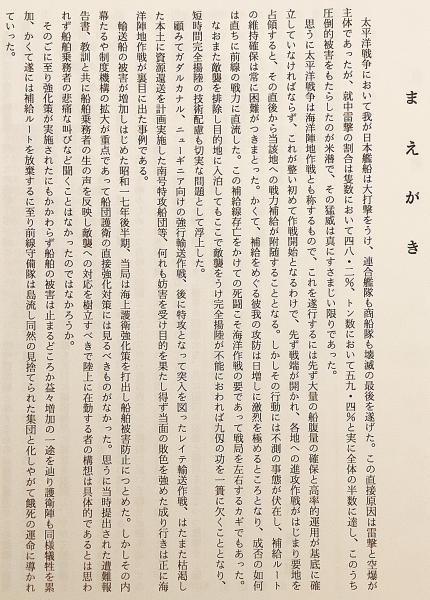 まえがき
太平洋戦争において我が日本艦船は大打撃をうけ、連合艦隊も商船隊も壊滅の最後を遂げた。この直接原因は雷撃と空爆が
主体であったが、就中雷撃の割合は隻数において四八・二％、トン数において五九・四％と実に全体の半数に達し、このうち
圧倒的被害をもたらしたのが米潜で、その猛威は真にすさまじい限りであった。
思うに太平洋戦争は海洋陣地作戦とも称するもので、これを遂行するには先ず大量の船腹量の確保と高率的運用が基底に確
立していなければならず、これが整い初めて作戦開始となるわけで、先ず戦端が開かれ、各地への進攻作戦がはじまり要地を
占領すると、その直後から当該地への戦力補給が附随することとなる。しかしその行動には不測の事態が伏在し、補給ルート
の維持確保は常に困難がつきまとった。かくて、補給をめぐる彼我の攻防は日増しに激烈を極めるところとなり、成否の如何
は直ちに前線の戦力に直流した。この補給線存亡をかけての死闘こそ海洋作戦の要であって戦局を左右するカギでもあった。
なおまた敵襲を排除し目的地に入泊してもここで敵襲をうけ完全揚陸が不能におわれば九仭の功を一簣に欠くこととなり、
短時間完全揚陸の技術配慮も切実な問題として浮上した。
顧みてガダルカナル、ニューギニア向けの強行輸送作戦、後に特攻となって突入を図ったレイテ輸送作戦、はたまた枯渇し
た本土に資源還送を計画実施した南号特攻船団等、何れも妨害を受け目的を果たし得ず当面の敗色を強めた成り行きは正に海
洋陣地作戦が裏目に出た事例である。
輸送船の被害が増加しはじめた昭和一七年後半期、当局は海上護衛強化策を打出し船舶被害防止につとめた。しかしその内
幕たるや制度機構の拡大が重点であって船団護衛の直接強化対策には見るべきものがなかった。思うに当時提出された遭難報
告書、教訓と共に船舶乗務者の生の声を反映し敵襲への対応を樹立すべきで陸上に在勤する者の構想は具体的であるとは思わ
れず船舶乗務者の悲痛な叫びなど聞くことはなかったのではなかろうか。
そのごに至り強化策が実施されたにもかかわらず船舶の被害は止まるどころか益々増加の一途を辿り護衛陣も同様犠牲を累
加、かくて遂には補給ルートを放棄するに至り前線守備隊は島流し同然の見捨てられた集団と化しやがて餓死の運命に導かれ
ていった。